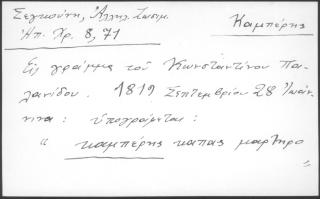 Σεγκούνη, Ἀλληλ. Ζωσιμ.
Ἀπ. Χρ. 8, 71
Καμπέρης
Εἰς γράμμα τοῦ Κωνσταντίνου Πα-
λανίδου. 1819 Σεπτεμβρίου 28 Ἰωάν-
νινα: ὑπογράφεται:
" καμπέρης καπας μαρτηρο
"